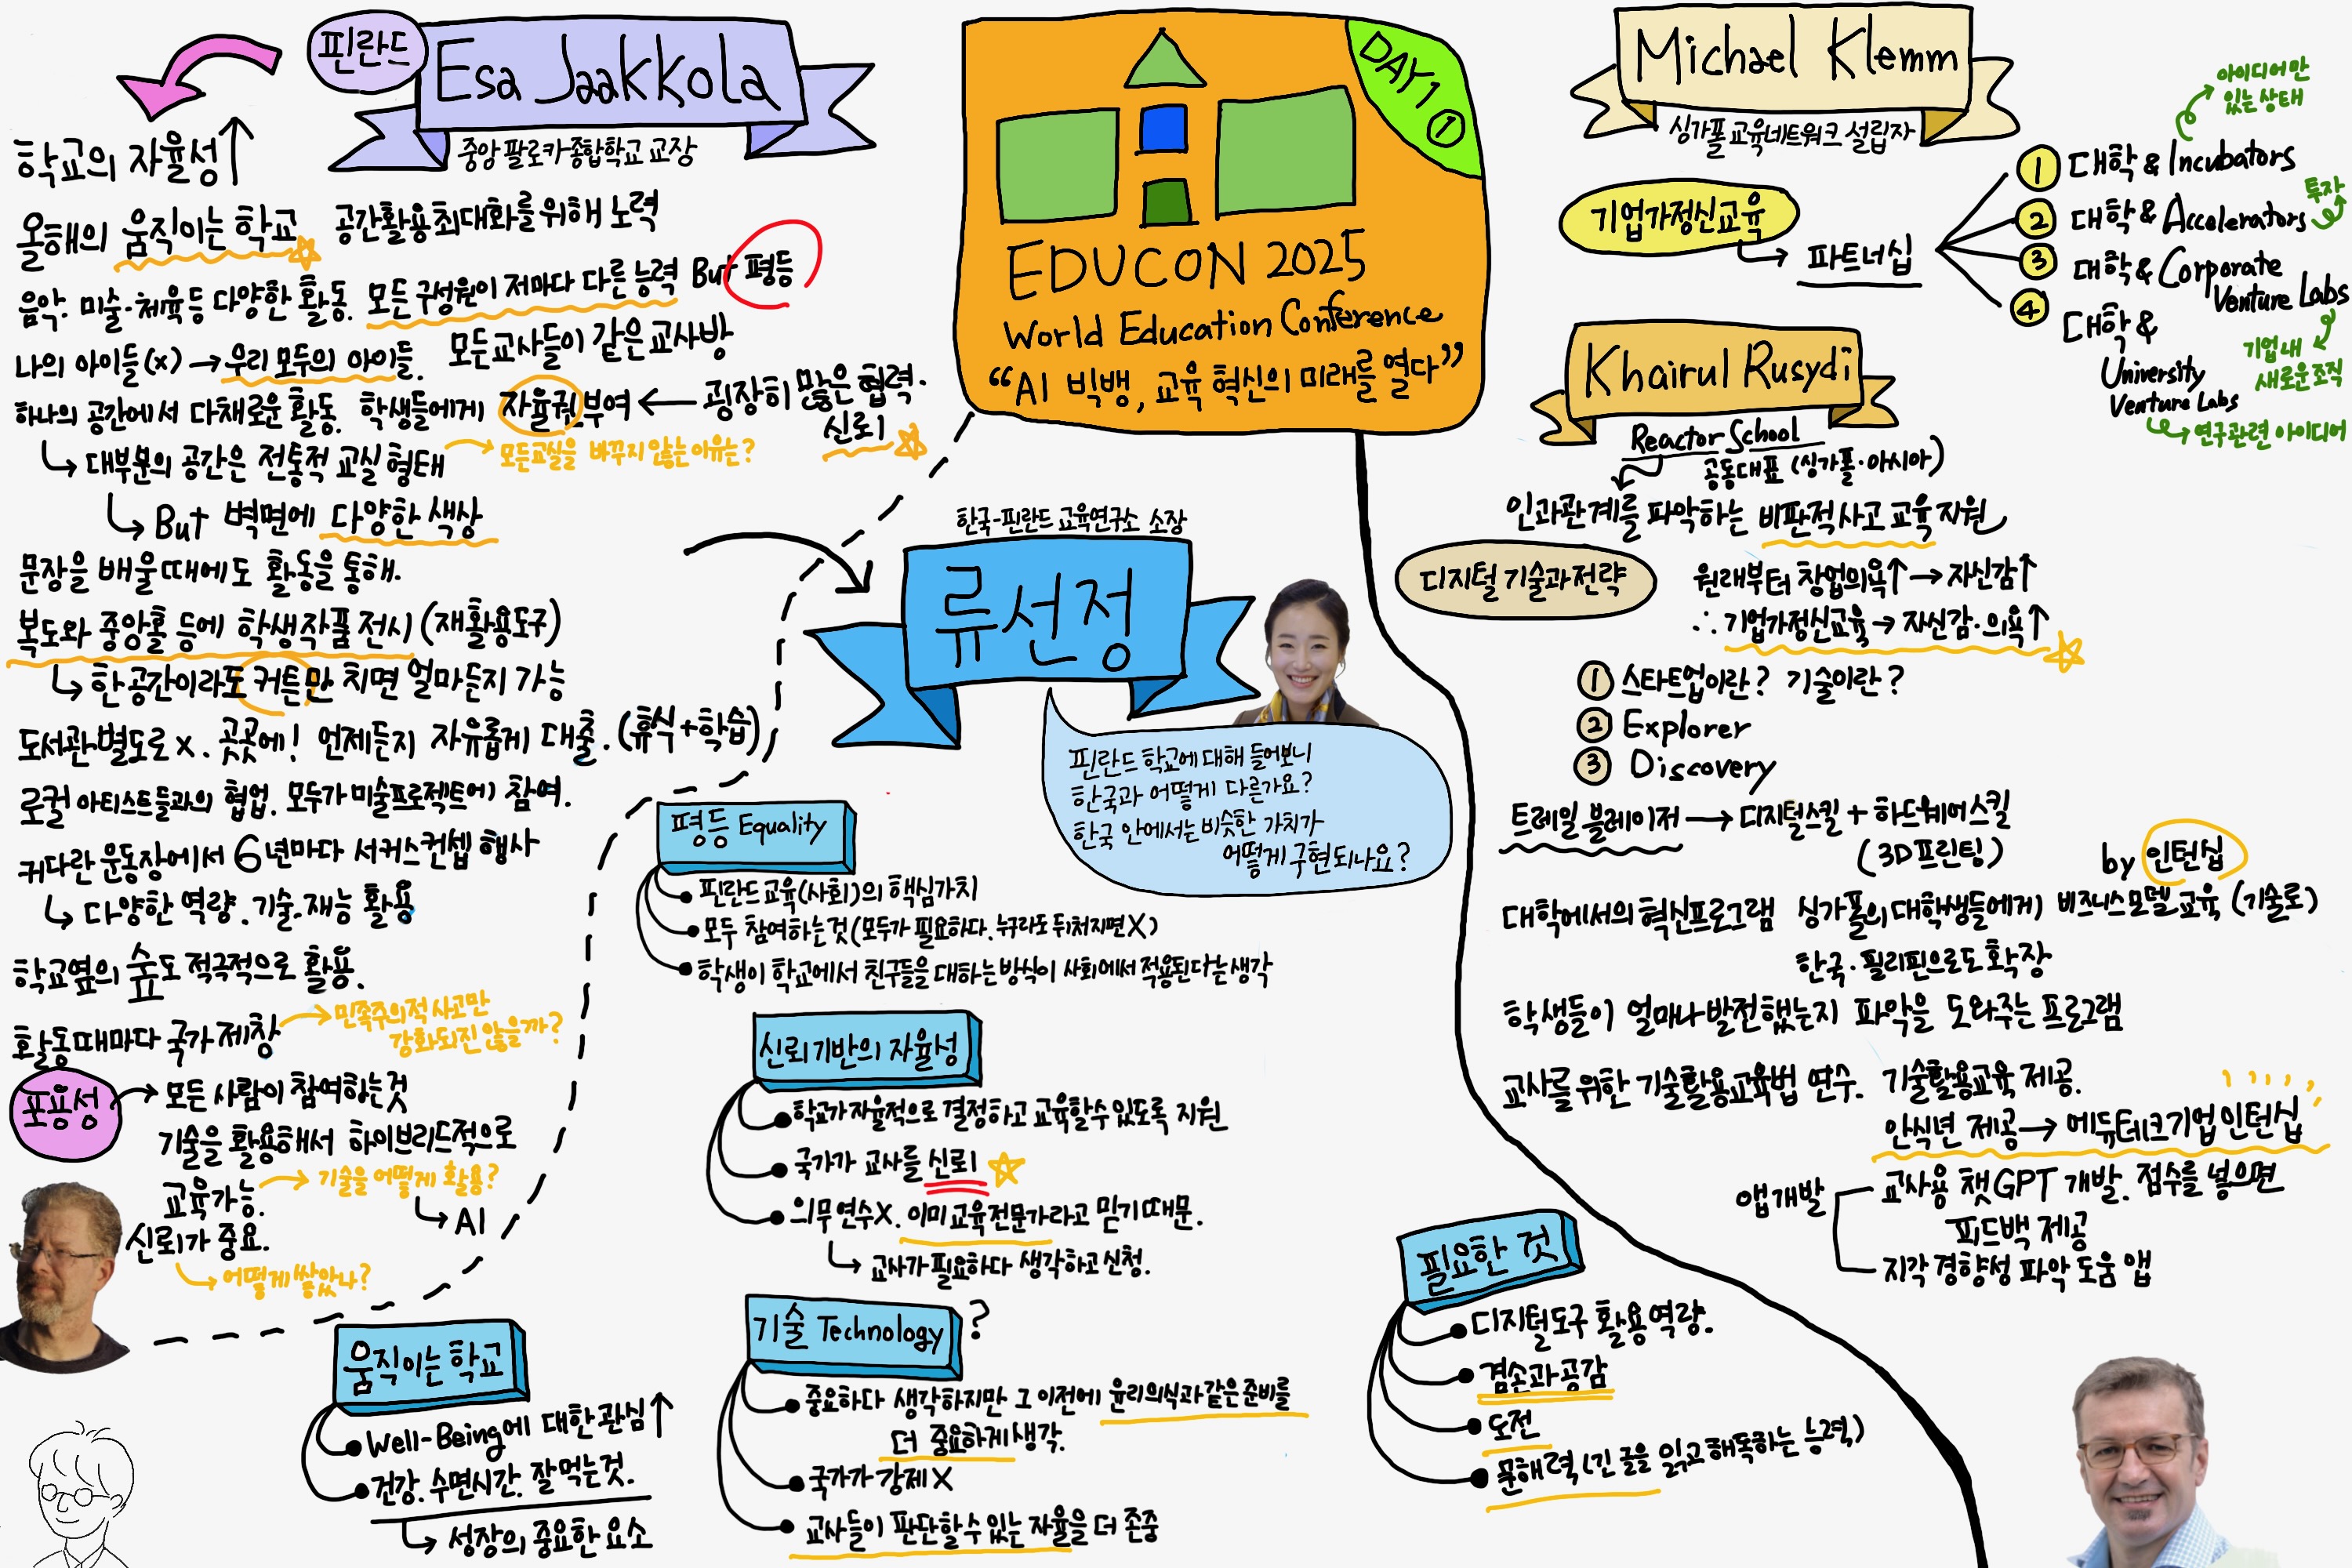 핀란드
Esa Jaakkola
중앙 팔로카 종합학교 교장
학교의 자율성↑
올해의 움직이는 학교
공간활용 최대화를 위해 노력
음악. 미술·체육 등 다양한 활동. 모든 구성원이 저마다 다른 능력 But 평등
나의 아이들(x) → 우리 모두의 아이들. 모든교사들이 같은 교사방
하나의 공간에서 다채로운 활동. 학생들에게 자율권 부여 ← 굉장히 많은 협력.
신뢰
↳ 대부분의 공간은 전통적 교실 형태
→ 모든교실을 바꾸지 않는 이유는?
↳ But 벽면에 다양한 색상
문장을 배울 때에도 활동을 통해.
복도와 중앙홀 등에 학생작품 전시 (재활용도구)
↳ 한 공간이라도 커튼만 치면 얼마든지 가능
도서관 별도로 x. 곳곳에! 언제든지 자유롭게 대출. (휴식+학습)
로컬 아티스트들과의 협업. 모두가 미술프로젝트에 참여.
커다란 운동장에서 6년마다 서커스컨셉 행사
↳ 다양한 역량. 기술. 재능 활용
학교옆의 숲도 적극적으로 활용.
활동때마다 국가 제창
→ 민족주의적 사고만
강화되진 않을까?
포용성
→ 모든 사람이 참여하는것
기술을 활용해서 하이브리드적으로
교육가능.
→ 기술을 어떻게 활용?
↳ AI
신뢰가 중요.
→ 어떻게 쌓았나?
DAY1 ①
EDUCON 2025
World Education Conference
“AI 빅뱅, 교육 혁신의 미래를 열다”
한국-핀란드 교육연구소 소장
류선정
핀란드 학교에 대해 들어보니
한국과 어떻게 다른가요?
한국 안에서는 비슷한 가치가
어떻게 구현되나요?
평등 Equality
핀란드교육(사회)의 핵심가치
모두 참여하는것 (모두가 필요하다. 누구라도 뒤처지면 X)
학생이 학교에서 친구들을 대하는 방식이 사회에서 적용된다는 생각
신뢰 기반의 자율성
학교가 자율적으로 결정하고 교육할수 있도록 지원
국가가 교사를 신뢰
의무 연수X. 이미 교육 전문가라고 믿기 때문.
↳ 교사가 필요하다 생각하고 신청.
기술 Technology ?
중요하다 생각하지만 그 이전에 윤리의식과 같은 준비를
더 중요하게 생각.
국가가 강제 X
교사들이 판단할 수 있는 자율을 더 존중
움직이는 학교
Well-Being에 대한 관심↑
건강. 수면시간. 잘 먹는것.
↳ 성장의 중요한 요소
필요한 것
디지털도구 활용 역량.
겸손과 공감
도전
문해력 (긴 글을 읽고 해독하는 능력)
Michael Klemm
싱가폴 교육네트워크 설립자
기업가정신교육
→ 파트너십
① 대학 & Incubators
아이디어만
있는 상태
② 대학 & Accelerators
투자
③ 대학 & Corporate
Venture Labs
기업 내
새로운 조직
④ 대학 &
University
Venture Labs
→ 연구관련 아이디어
Khairul Rusydi
Reactor School
공동대표 (싱가폴·아시아)
인과관계를 파악하는 비판적 사고 교육 지원
디지털 기술과 전략
원래부터 창업의욕↑ → 자신감↑
∴ 기업가정신교육 → 자신감·의욕↑
① 스타트업이란? 기술이란?
② Explorer
③ Discovery
트레일 블레이저 → 디지털스킬 + 하드웨어스킬
(3D프린팅)
by 인턴십
대학에서의 혁신프로그램 싱가폴의 대학생들에게 비즈니스모델 교육 (기술로)
한국·필리핀으로도 확장
학생들이 얼마나 발전했는지 파악을 도와주는 프로그램
교사를 위한 기술활용교육법 연수. 기술활용교육 제공.
안식년 제공 → 에듀테크기업 인턴십
앱개발
교사용 챗GPT 개발. 점수를 넣으면
피드백 제공
지각 경향성 파악 도움 앱